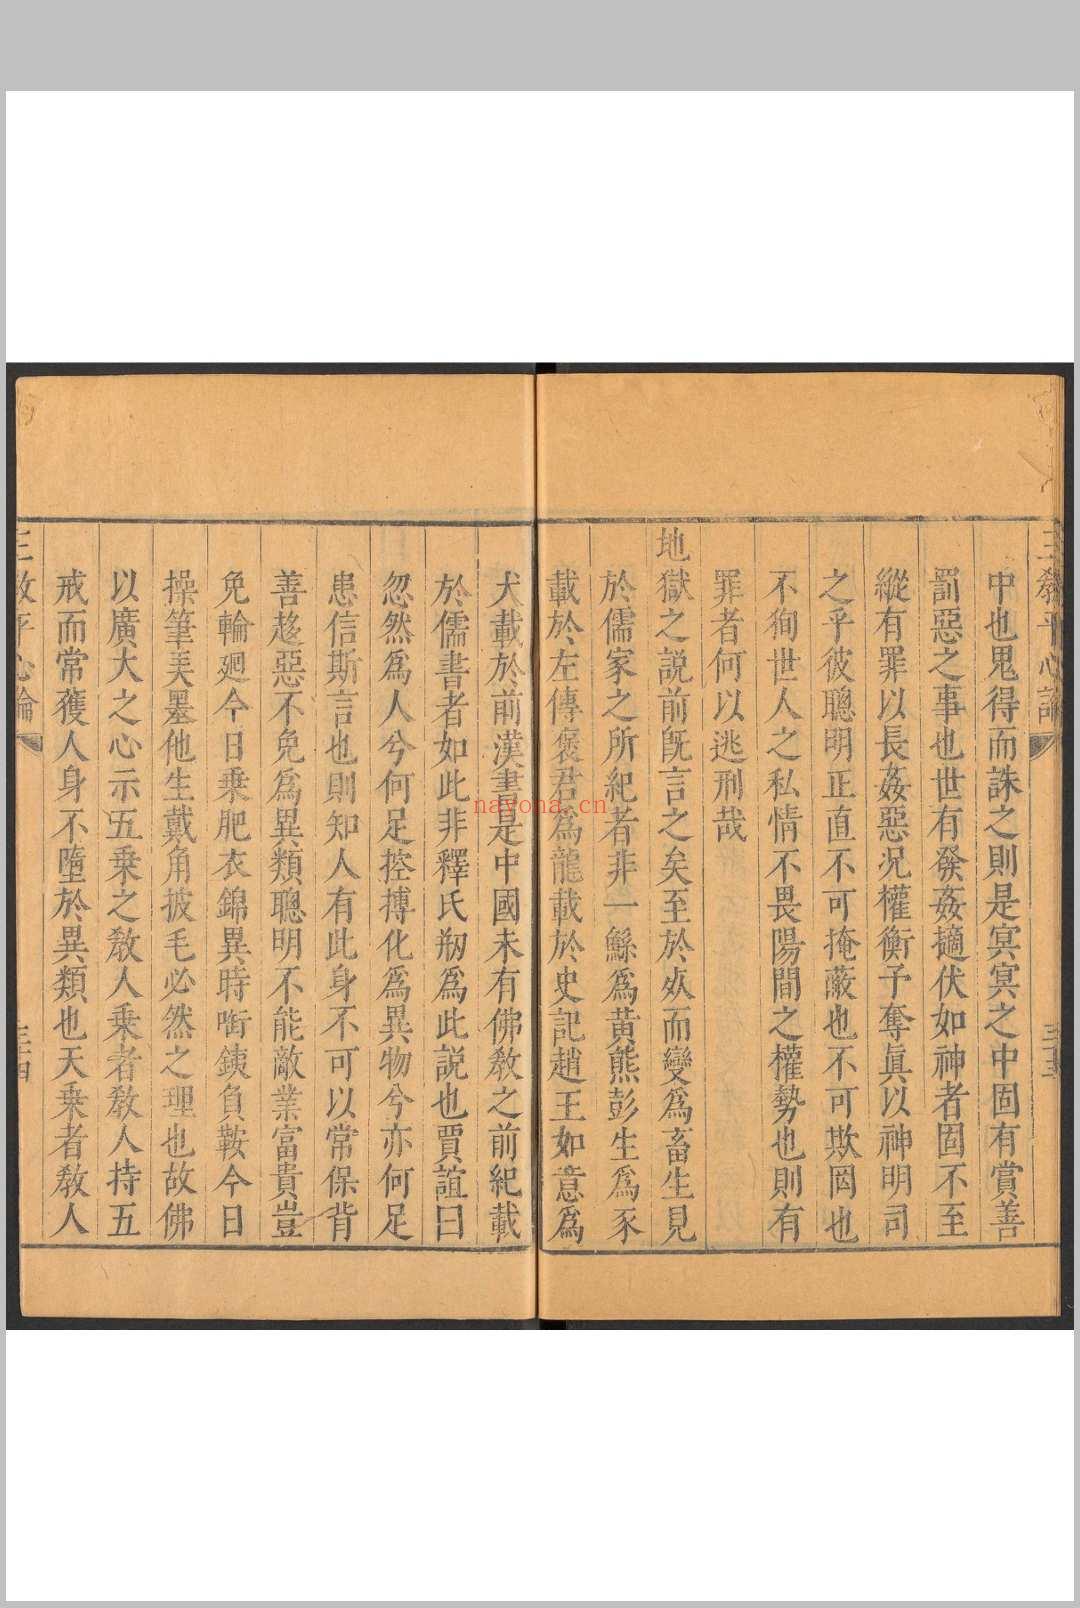 三教平心論
三十三
中也鬼得而誅之則是冥冥之中固有賞善
罰惡之事也世有發姦擿伏如神者固不至
縱有罪以長姦惡況權衡予奪眞以神明司
之乎彼聰明正直不可掩蔽也不可欺罔也
不狥世人之私情不畏陽間之權勢也則有
罪者何以逃刑哉
地獄之説前旣言之矣至於死而變爲畜生見
於儒家之所紀者非一鯀爲黃熊彭生爲豕
載於左傳褒君爲龍載於史記趙王如意爲
犬載於前漢書是中國未有佛教之前紀載
於儒書者如此非釋氏剏爲此説也賈誼曰
忽然爲人兮何足控摶化爲異物兮亦何足
患信斯言也則知人有此身不可以常保背
善趍惡不免爲異類聰明不能敵業富貴豈
免輪廻今日乗肥衣錦異時啣鐵負鞍今日
操筆弄墨他生戴角披毛必然之理也故佛
以廣大之心示五乗之教人乗者教人持五
戒而常獲人身不墮於異類也天乗者教人
三教平心論
三十四
nayona.cn